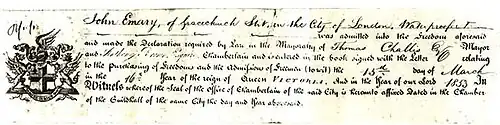 John Emary, of Gracechurch Street, in the City of London, Waterproofer
was admitted into the Freedom aforesaid
and made the Declaration required by Law in the Mayoralty of Thomas Challis Esq Mayor
and Key, Chamberlain and is entered in the book signed with the Letter relating
to the Purchasing of Freedoms and the Admissions of Freemen (to wit) the 15th day of March
in the 16th Year of the reign of Queen VICTORIA. And in the Year of our Lord 1853 In
Witness whereof the Seal of the Office of Chamberlain of the said City is hereunto affixed Dated in the Chamber
of the Guildhall of the same City the day and Year abovesaid.